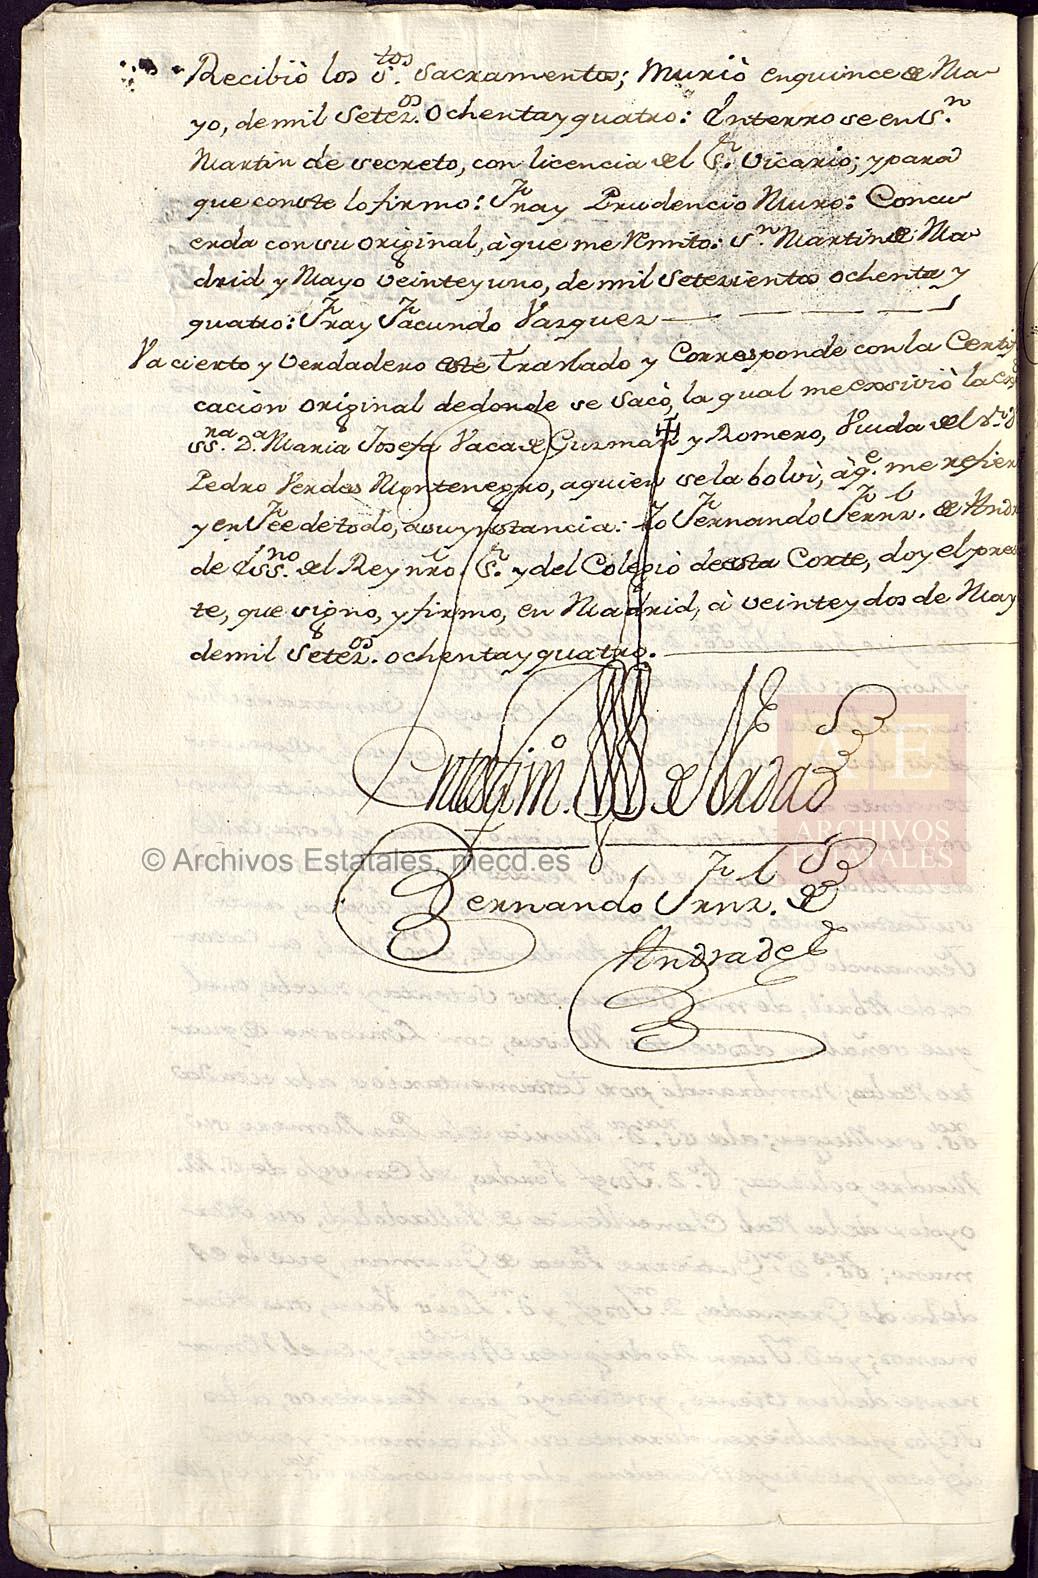 Recibiò los S.tos Sacramentos; Muriò en quince de Ma-
yo, de mil Setez.os Ochenta y quatro: Enterro se en S.n
Martin de secreto, con licencia del S.r Vicario; y para
que conste lo firmo: Fray Prudencio Muro: Concu-
erda con su original, à que me remito: S.n Martin de Ma-
drid y Mayo veinte y uno, de mil Setezientos ochenta y
quatro: Fray Facundo Vazquez
Va cierto y Verdadero este Traslado y Corresponde con la Certifi
cacion original de donde se Sacò, la qual me exsiviò la
SS.ra D.a Maria Josefa Vaca de Guzman y Romero, Viuda del S.r D
Pedro Verdes Montenegro, a quien se la bolvi, à q.e me refier
y en Fee de todo, a su ynstancia: Yo Fernando Fernz. de Andr
de Ess.no del Rey nro S.r y del Colegiò de esta Corte, doy el pres
te, que signo, y firmo, en Madrid, à veinte y dos de May
de mil Setez.os ochenta y quatro.
En testim.o de Verdad
© Archivos Estatales, mecd.es
AE
ARCHIVOS
ESTATALES
Fernando Frnz. de
Andrade